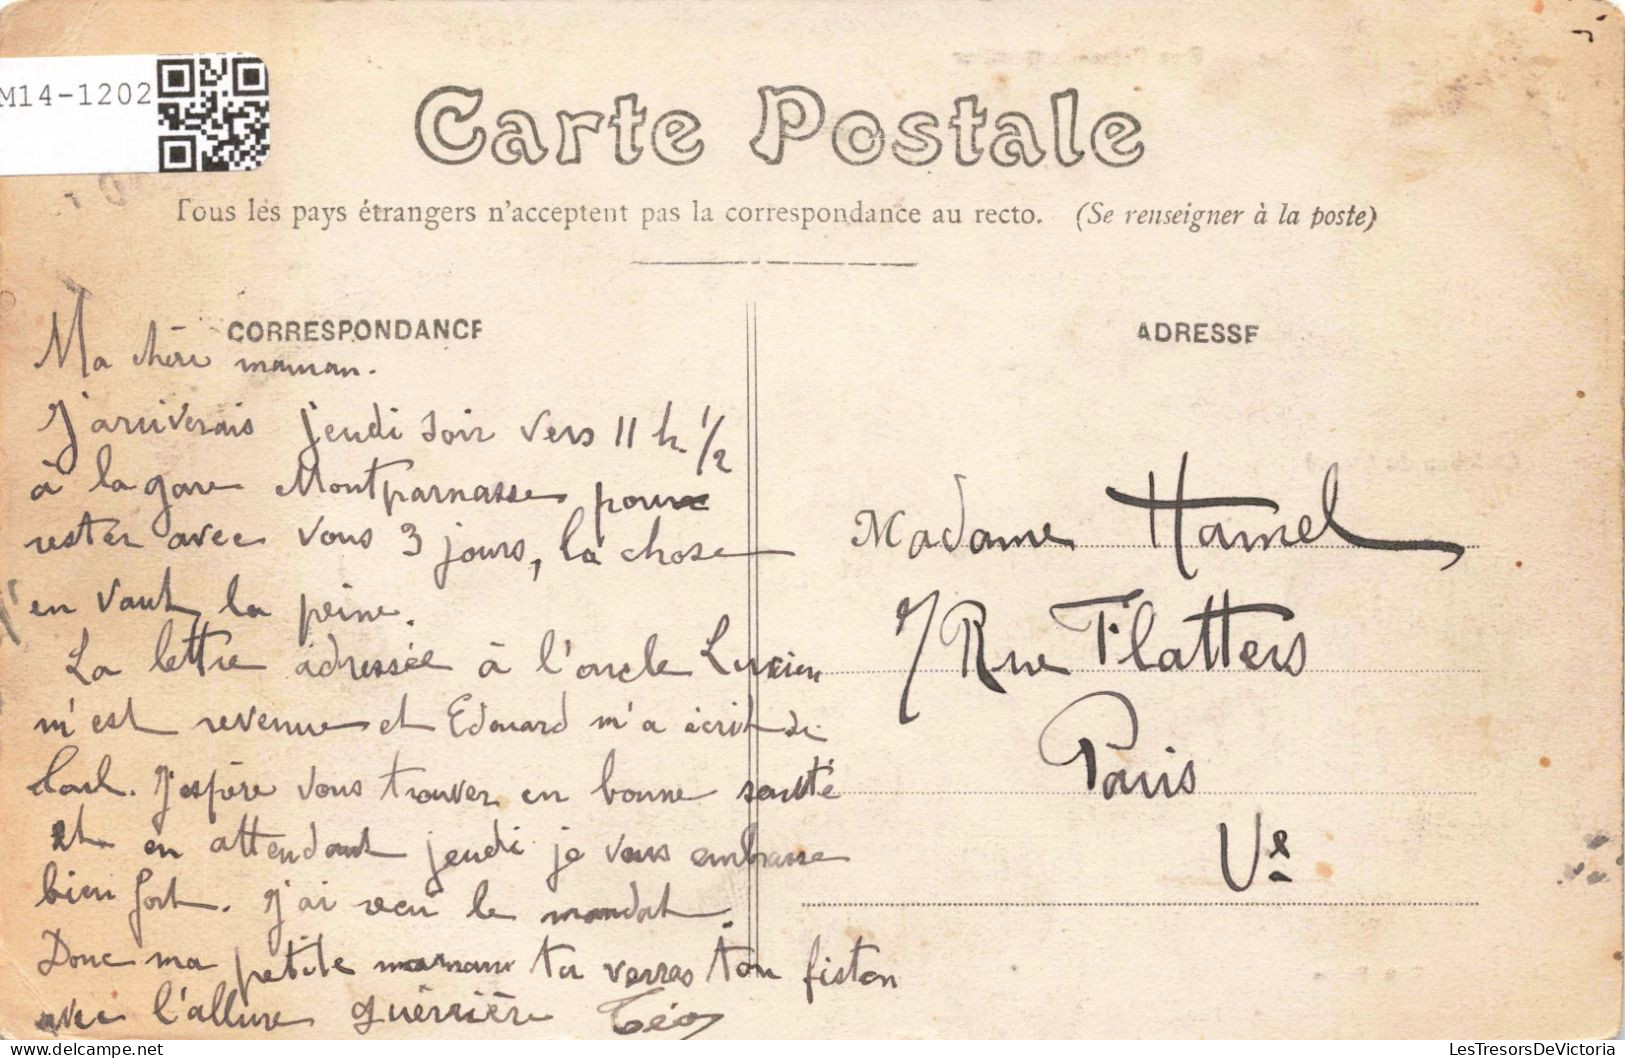 M14-1202
Carte Postale
Tous les pays étrangers n'acceptent pas la correspondance au recto. (Se renseigner à la poste)
CORRESPONDANCE
Ma chère maman.
J'arriverais jeudi soir vers 11 h. 1/2
à la gare Montparnasse pour
rester avec vous 3 jours, la chose
en vaut la peine.
La lettre adressée à l'oncle Lucien
m'est revenue et Edouard m'a écrit de
J'espère vous trouver en bonne santé
et en attendant jeudi je vous embrasse
bien fort. J'ai reçu le mandat.
Donc ma petite maman tu verras ton fiston
avec l'allure guérrière Téo
ADRESSE
Madame Hamel
7 Rue Flatters
Paris
Ve
LesTresorsDeVictoria